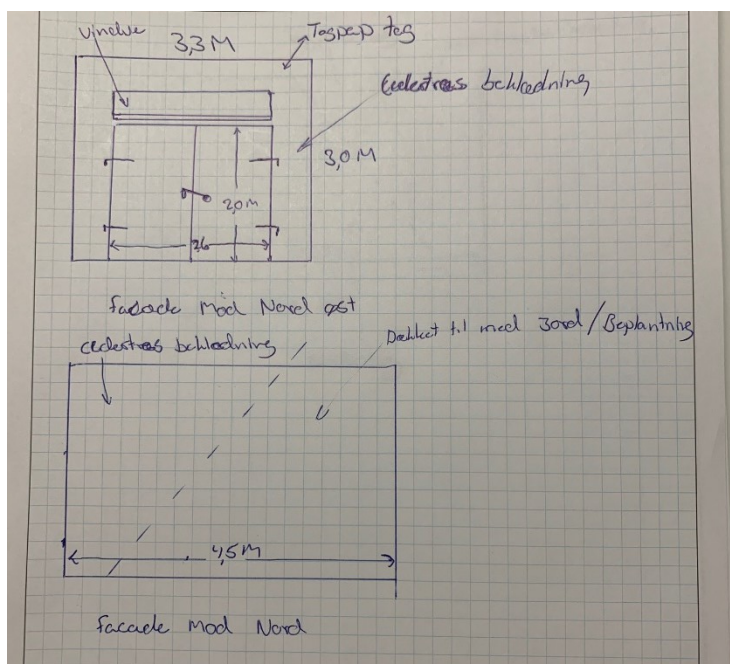 vindue
3,3 M
Tagpap tag
Cedertræs beklædning
3,0 M
2,0 M
2,6
facade mod Nord øst
cedertræs beklædning
Dækket til med Jord/Beplantning
4,5 M
facade mod Nord